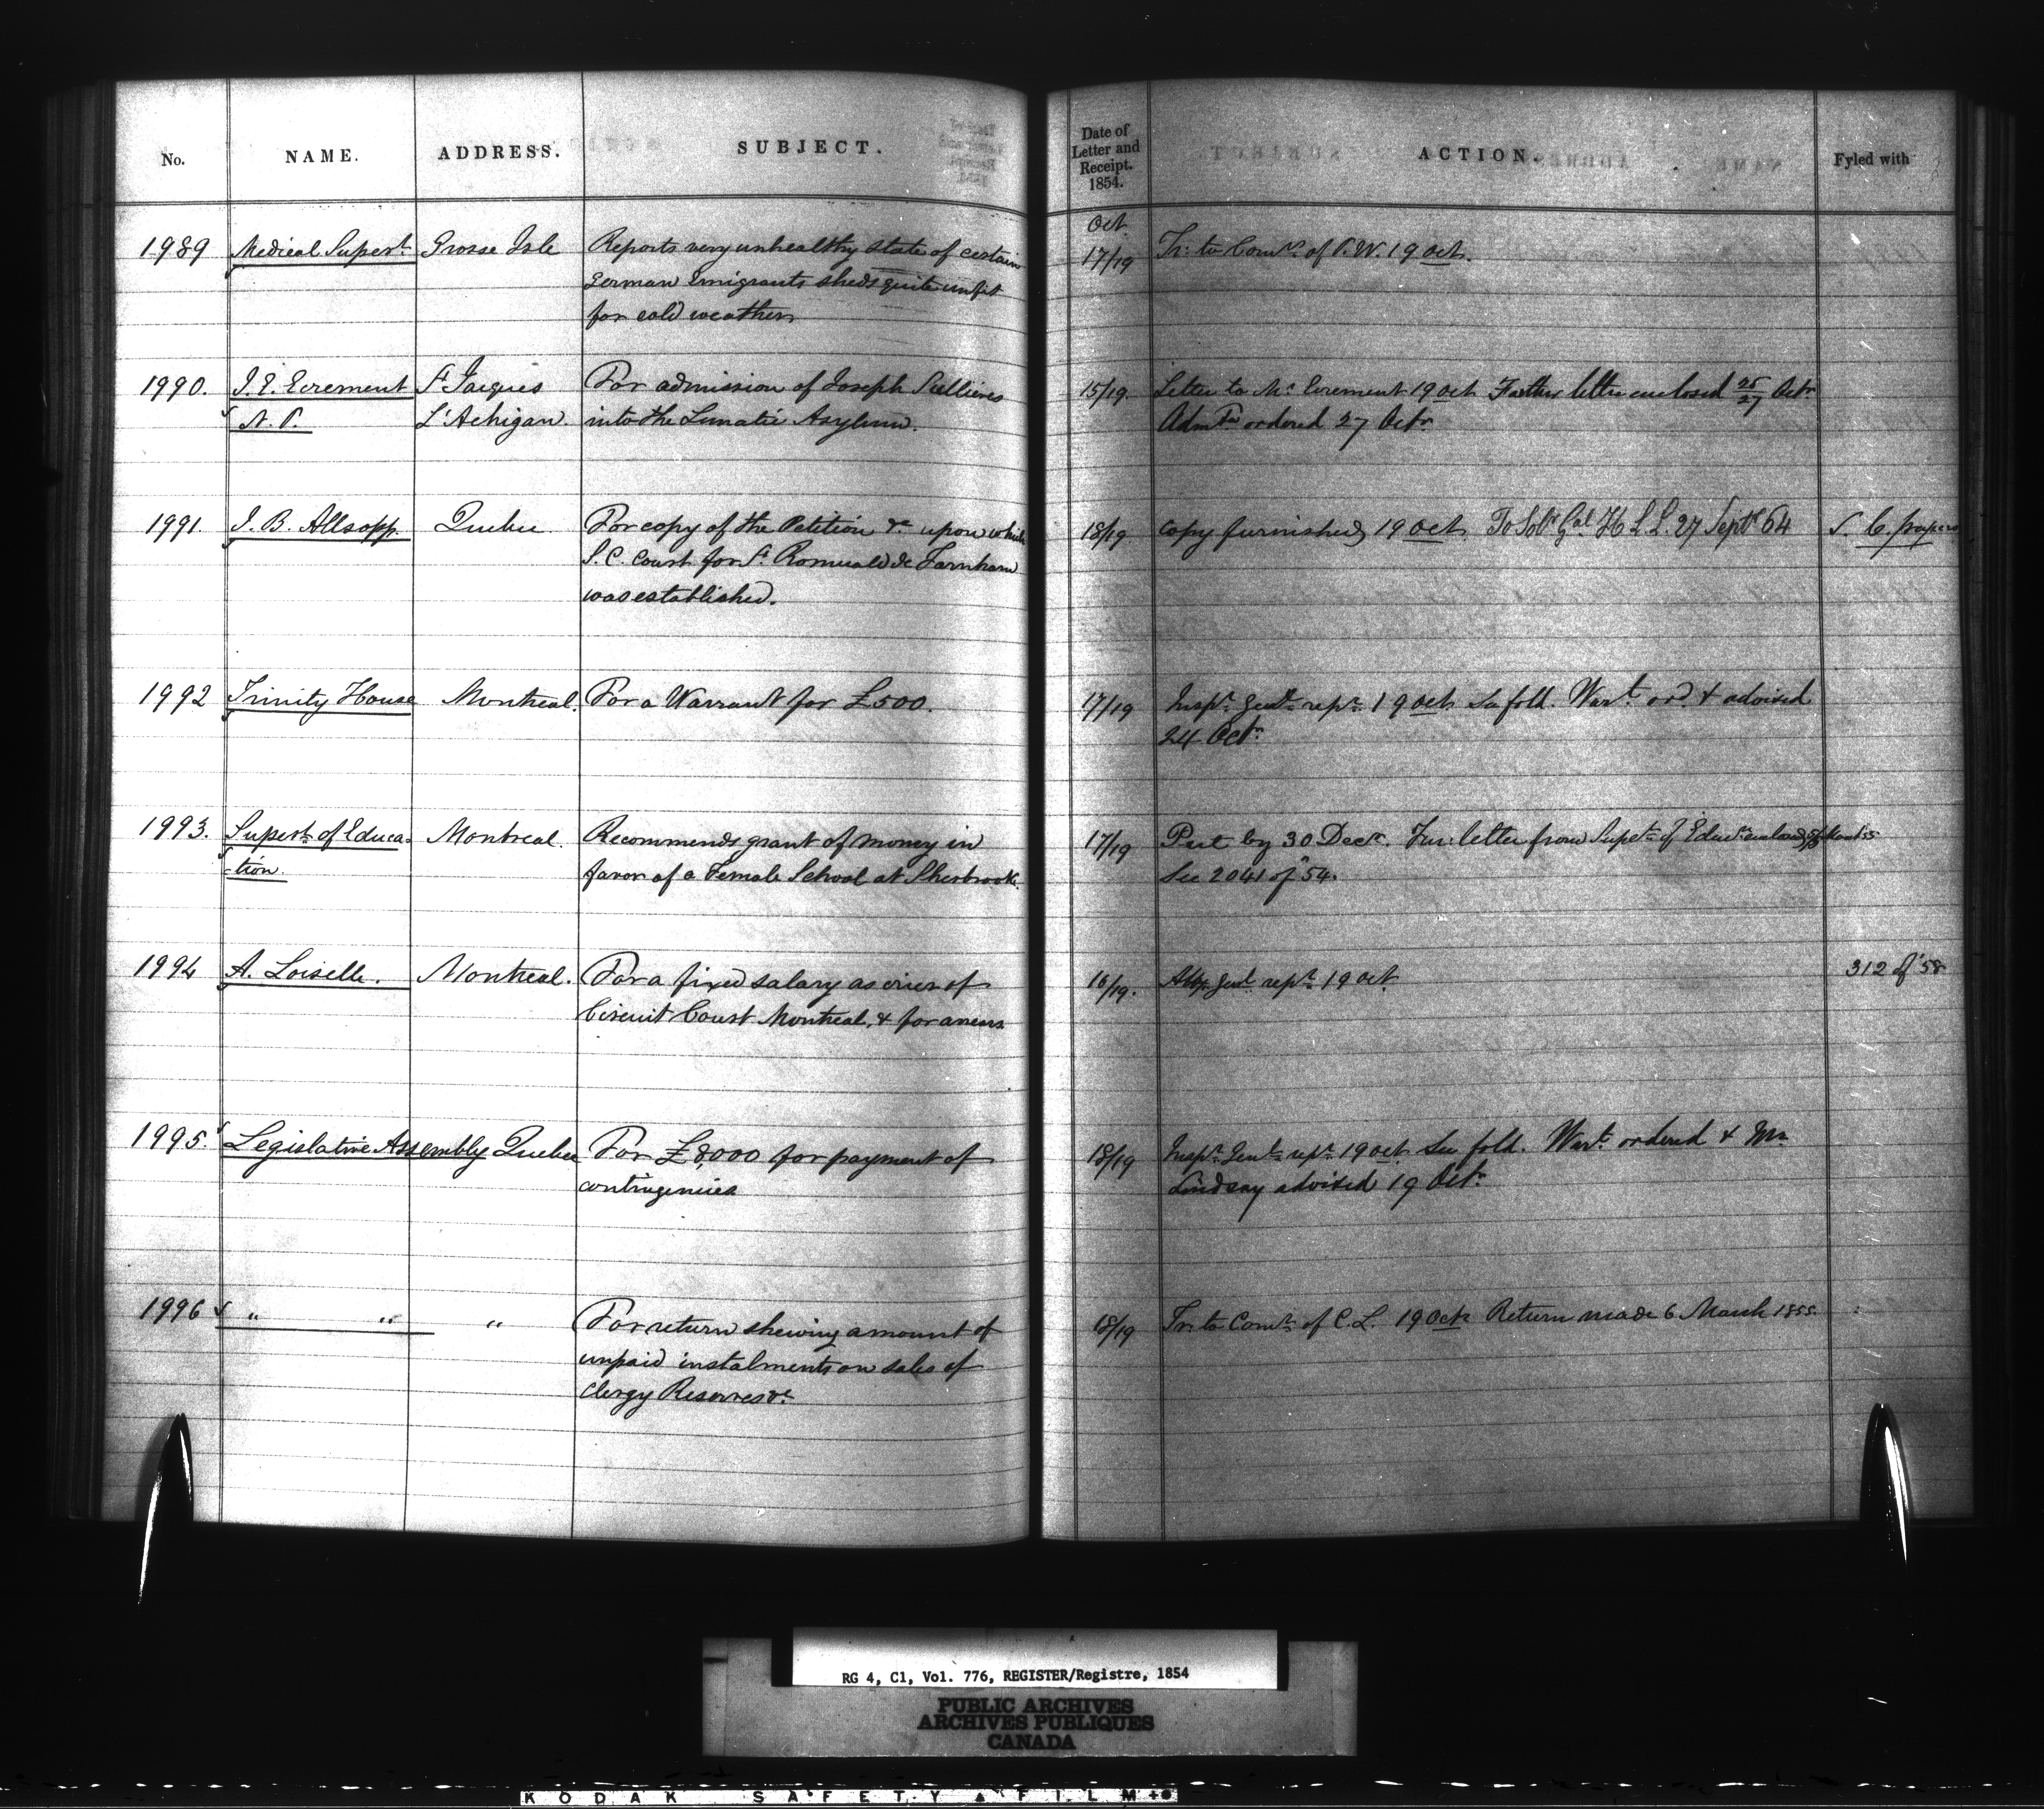 No. NAME. ADDRESS. SUBJECT. Date of Letter and Receipt. 1854. ACTION. Fyled with
Oct
1989 Medical Supert. Grosse Isle Reports very unhealthy state of certain 17/19 Tr: to Comrs. of P. W. 19 Oct.
German Emigrants sheds quite unfit
for cold weather
1990. J. E. Ecrement St. Jacques For admission of Joseph Sullieres 15/19. Letter to Mr. Ecrement 19 Oct Further letter enclosed 25/27 Octr.
N. P. L'Achigan. into the Lunatic Asylum. Admtn. ordered 27 Octr.
1991. J. B. Allsopp. Quebec For copy of the Petition &c upon which 18/19 copy furnished 19 Oct. To Solr. Gal. H L L. 27 Septr 64 S. C. papers
S. C. Court for St. Romuald de Farnham
was established.
1992 Trinity House Montreal. For a Warrant for £500. 17/19 Inspr. Genls. repr. 19 Oct. See fold. Wart. ord. & advised
24 Octr.
1993. Supert. of Educa- Montreal. Recommends grant of money in 17/19 Put by 30 Decr. Fur: letter from Supt. of Educn.
-tion. favor of a Female School at Sherbrook. See 2041 of 54.
1994 A. Loiselle. Montreal. For a fixed salary as crier of 16/19. Atty. Genl. rept. 19 Oct. 312 of 58
Circuit Court Montreal, & for arrears
1995. Legislative Assembly Quebec For £8,000 for payment of 18/19 Inspr. Genls. rept. 19 Oct. See fold. Wart. ordered & Mr.
contingencies Lindsay advised 19 Octr.
1996 " " " For return shewing amount of 18/19 Tr. to Comr. of C. L. 19 Oct. Return made 6 March 1855.
unpaid instalments on sales of
Clergy Reserves &c.
RG 4, C1, Vol. 776, REGISTER/Registre, 1854
PUBLIC ARCHIVES
ARCHIVES PUBLIQUES
CANADA
KODAK SAFETY FILM